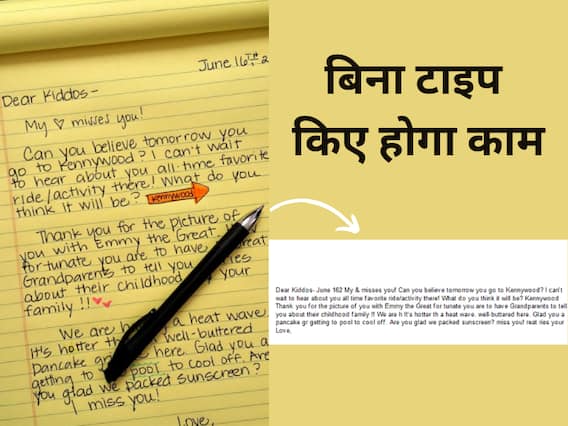 June 16TH
Dear Kiddos-
My misses you!
Can you believe tomorrow you
go to Kennywood? I can't wait
to hear about you all-time favorite
ride/activity there! What do you
think it will be? Kennywood
Thank you for the picture of
you with Emmy the Great
fortunate you are to have
Grandparents to tell you
about their childhood your
family!!
We are a heat wave.
It's hotter well-buttered
Pancake here. Glad you
getting to pool to cool off. Are
you glad we packed sunscreen?
I miss you!
Love,
बिना टाइप
किए होगा काम
Dear Kiddos- June 162 My & misses you! Can you believe tomorrow you go to Kennywood? I can't
wait to hear about you all time favorite ride/activity there! What do you think it will be? Kennywood
Thank you for the picture of you with Emmy the Great for tunate you are to have Grandparents to tell
you about their childhood family !! We are h It's hotter th a heat wave. well-buttered here. Glad you a
pancake gr getting to pool to cool off. Are you glad we packed sunscreen? miss you! reat ries your
Love,